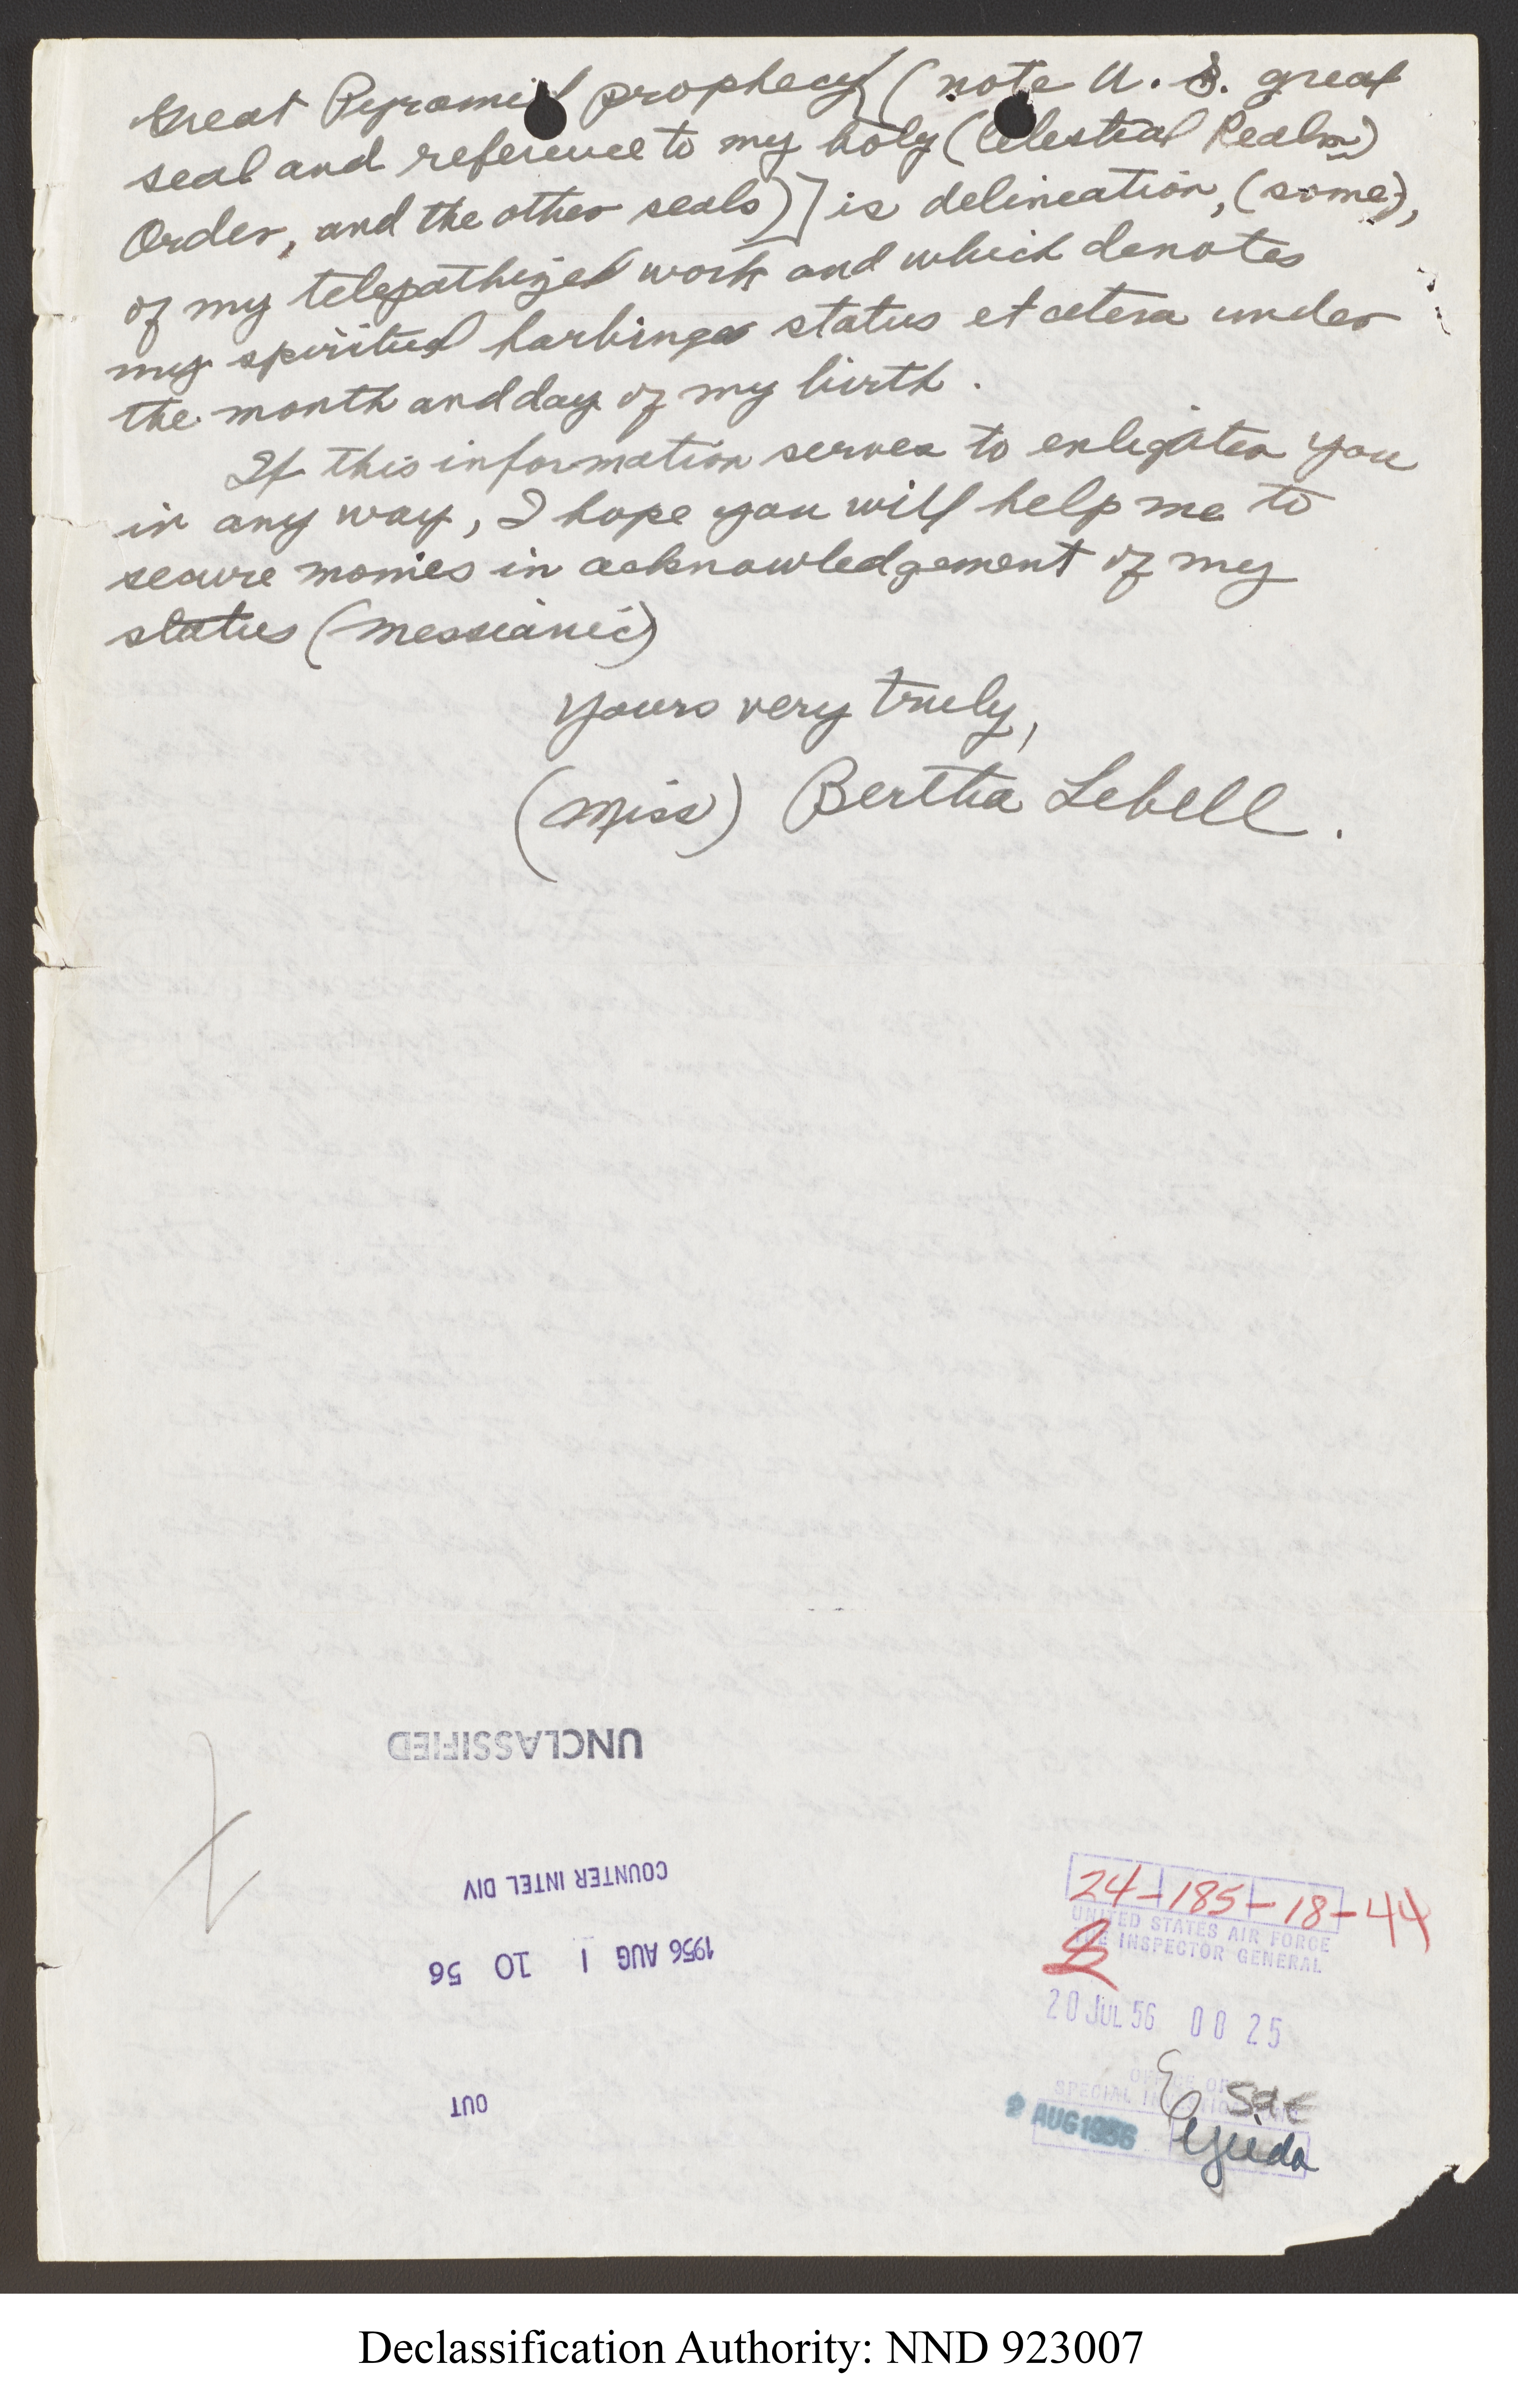 Great Pyramid prophecy (note U.S. great
seal and reference to my holy (Celestial Realm)
Order, and the other seals)] is delineation, (some),
of my telepathized work and which denotes
my spiritual harbinger status et cetera under
the month and day of my birth.
If this information serves to enlighten you
in any way, I hope you will help me to
secure monies in acknowledgement of my
status (messianic)
Yours very truly,
(Miss) Bertha Lebell.
UNCLASSIFIED
COUNTER INTEL DIV
1956 AUG 1 10 56
OUT
24-185-18-44
UNITED STATES AIR FORCE
THE INSPECTOR GENERAL
20 JUL 56 00 25
OFFICE OF
SPECIAL
2 AUG 1956
Declassification Authority: NND 923007